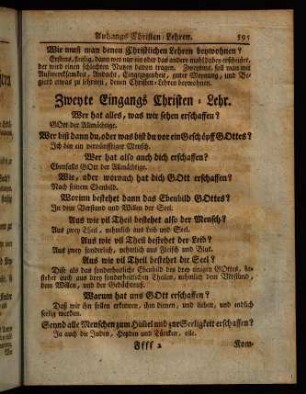 Anhangs Christen-Lehren. 595
Wie muß man denen Christlichen Lehren beywohnen?
Erstens, fleißig, dann wer nur ein oder das andere mahl dabey erscheinet,
der wird einen schlechten Nutzen davon tragen. Zweytens, soll man mit
Aufmercksamkeit, Andacht, Eingezogenheit, guter Meynung, und Be-
gierd etwas zu lehrnen, denen Christen-Lehren beywohnen.
Zweyte Eingangs Christen-Lehr.
Wer hat alles, was wir sehen erschaffen?
GOtt der Allmächtige.
Wer bist dann du, oder was bist du vor ein Geschöpff GOttes?
Ich bin ein vernünfftiger Mensch.
Wer hat also auch dich erschaffen?
Ebenfalls GOtt der Allmächtige.
Wie, oder wornach hat dich GOtt erschaffen?
Nach seinem Ebenbild.
Worinn bestehet dann das Ebenbild GOttes?
In dem Verstand und Willen der Seel.
Aus wie vil Theil bestehet also der Mensch?
Aus zwey Theil, nehmlich aus Leib und Seel.
Aus wie vil Theil bestehet der Leib?
Aus zwey sonderlich, nehmlich aus Fleisch und Blut.
Aus wie vil Theil bestehet die Seel?
Dise als das sonderbarliche Ebenbild des drey einigen GOttes, be-
stehet auch aus drey sonderheitlichen Theilen, nehmlich dem Verstand,
dem Willen, und der Gedächtnuß.
Warum hat uns GOtt erschaffen?
Daß wir ihn sollen erkennen, ihm dienen, und lieben, und endlich
seelig werden.
Seynd alle Menschen zum Himmel und zur Seeligkeit erschaffen?
Ja auch die Juden, Heyden und Türcken, alle.
Ffff 2